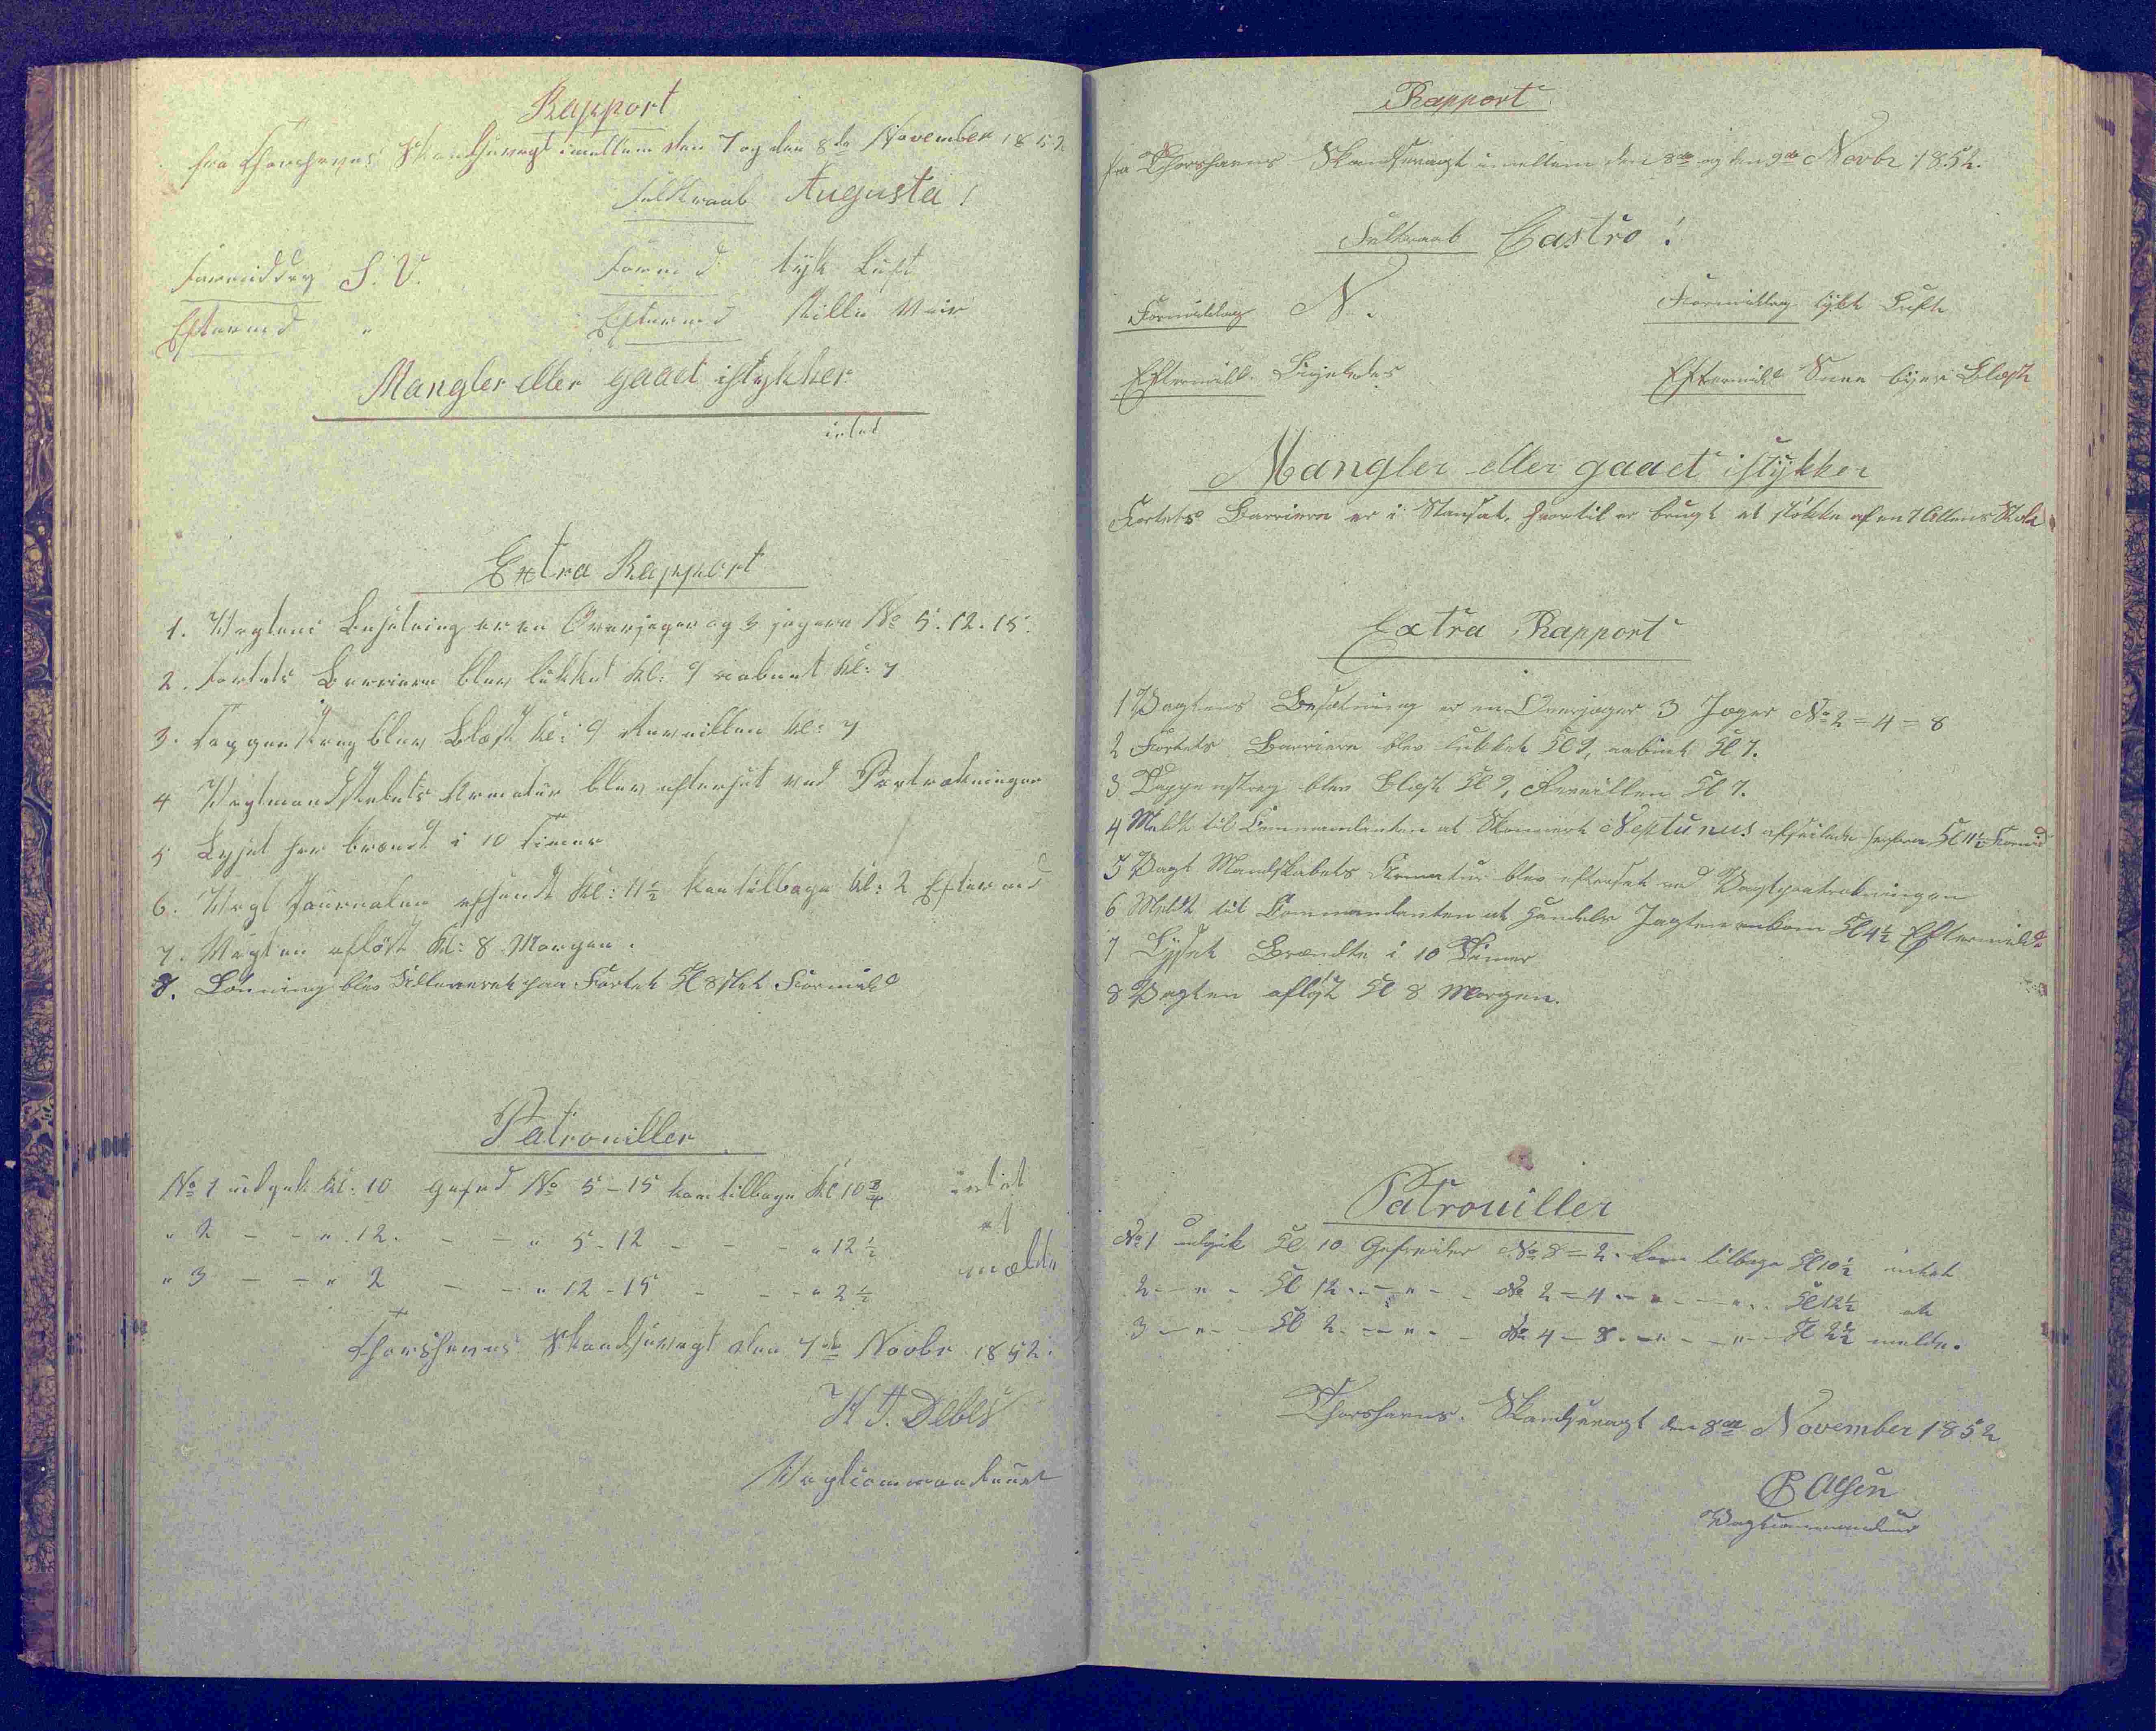 Rapport
fra Thorshavns Skandsevagt imellem den 7 og den 8de November 1852
Feltraab Augusta!
Formiddag S. V. Formd tyk Luft
Eftermd " Eftermd stille Veir
Mangler eller gaaet istykker
intet
Extra Rapport
1. Vagtens Besætning er en Overjæger og 3 jægere No 5. 12. 15.
2. Fortets Barriere blev lukket Kl: 9 aabnet Kl: 7
3. Tappenstreg blev Blæst Kl: 9 Reveillen Kl: 7
4 Vagtmandskabets Armatur blev efterset ved Partrækningen
5 Lyset har brændt i 10 Timer
6. Vagt Journalen afsendt Kl: 11½ kom tilbage Kl: 2 Eftermd
7. Vagten afløst Kl: 8 Morgen.
8. Lønning blev udleveret paa Fortet Kl 8slet Formidd
Patrouiller
No 1 udgik Kl: 10 Gefred No 5-15 kom tilbage Kl 10¾ intet
" 2 - - " 12. - - " 5-12 - - - " 12½ at
" 3 - - " 2 - - " 12-15 - - - " 2½ melde
Thorshavns Skandsevagt den 7de Novbr 1852.
H. J. Debes
Vagtcommandeur
Rapport
fra Thorshavns Skandsevagt imellem den 8de og den 9de Novbr 1852.
Feltraab Castro!
Formiddag N. Formiddag tykt Luft
Eftermidd. Ligeledes Eftermidd Snee byer Blæst
Mangler eller gaaet istykker
Fortets Barriere er i Standsat, hvortil er brugt et støkke af en 7 Allens
Extra Rapport
1 Vagtens Besætning er en Overjæger 3 Jæger No 2 = 4 = 8
2 Fortets Barriere blev lukket Kl 9, aabnet Kl 7.
3 Tappenstreg blev Blæst Kl 9, Reveillen Kl 7.
4 Meldt til Commandanten at Skonnert Neptunus afseilede herfra Kl 11½ Formid
5 Vagt Mandskabets Armatur blev efterset ved Vagtparatrækningen
6 Meldt til Commandanten at Handels Jagten ankom Kl 4½ Eftermidd
7 Lyset Brændte i 10 Timer
8 Vagten afløst Kl 8 Morgen.
Patrouiller
No 1 udgik Kl 10 Gefreider No 8 = 2. kom tilbage Kl 10½ intet
2 - " - Kl 12. - " - - No 2 = 4 - " - - " - Kl 12½ at
3 - " - Kl 2. - " - - No 4 - 8 - " - - " - Kl 2½ melde.
Thorshavns. Skandsevagt den 8de November 1852
P Olsen
Vagtcommandeur